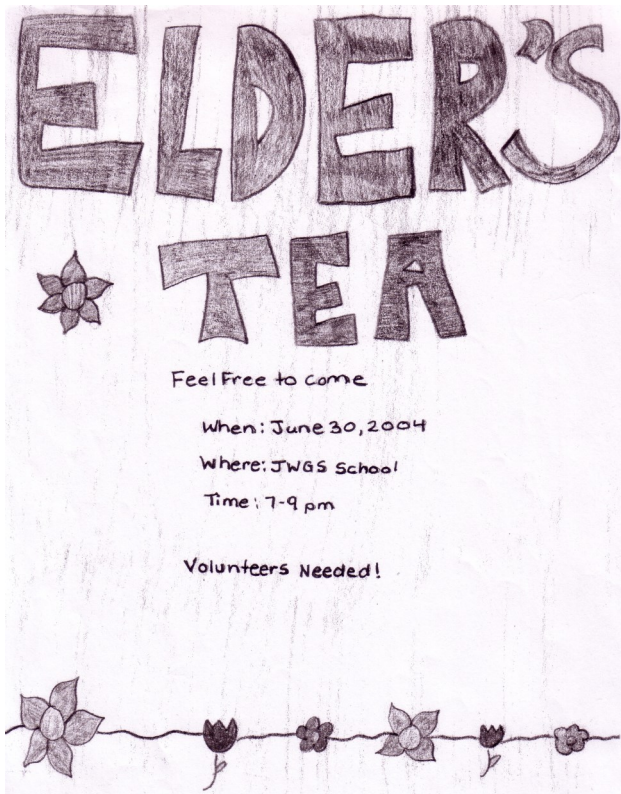 ELDER'S
TEA
Feel Free to come
When: June 30, 2004
Where: JWGS School
Time: 7-9 pm
Volunteers Needed!